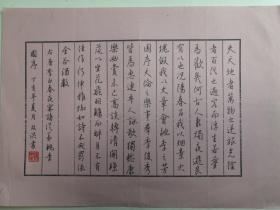 夫天地者萬物之逆旅光陰
者百代之過客而浮生若夢
為歡幾何古人秉燭夜遊良
有以也況陽春召我以煙景大
塊假我以文章會桃李之芳
園序天倫之樂事群季俊秀
皆為惠連吾人詠歌獨慚康
樂幽賞未已高談轉清開瓊
筵以坐花飛羽觴而醉月不有
佳作何伸雅懷如詩不成罰依
金谷酒數
右唐李白春夜宴諸從弟桃李
園序 丁亥年夏月 書